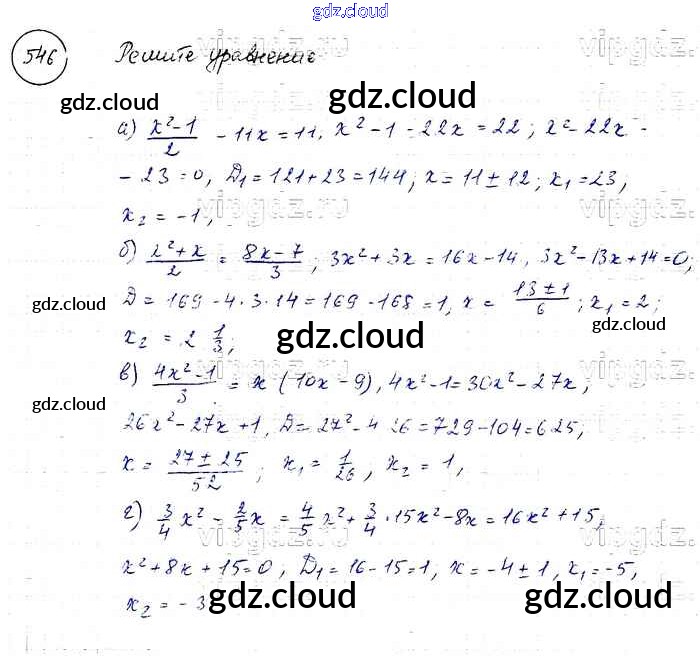 gdz.cloud
546 Решите уравнение
gdz.cloud
gdz.cloud gdz.cloud
а) (x²-1)/2 - 11x = 11, x² - 1 - 22x = 22; x² - 22x -
- 23 = 0, D₁ = 121 + 23 = 144; x = 11 ± 12; x₁ = 23,
x₂ = -1,
б) (x²+x)/2 = (8x-7)/3; 3x² + 3x = 16x - 14, 3x² - 13x + 14 = 0;
D = 169 - 4·3·14 = 169 - 168 = 1, x = (13 ± 1)/6; x₁ = 2;
gdz.cloud gdz.cloud
x₂ = 2 1/3;
gdz.cloud
в) (4x²-1)/3 = x(10x - 9), 4x² - 1 = 30x² - 27x;
gdz.cloud
26x² - 27x + 1, D = 27² - 4·26 = 729 - 104 = 625,
x = (27 ± 25)/52; x₁ = 1/26, x₂ = 1,
г) 3/4 x² - 2/5 x = 4/5 x² + 3/4 · 15x² - 8x = 16x² + 15,
x² + 8x + 15 = 0, D₁ = 16 - 15 = 1, x = -4 ± 1, x₁ = -5,
x₂ = -3
gdz.cloud gdz.cloud
vipgdz.ru